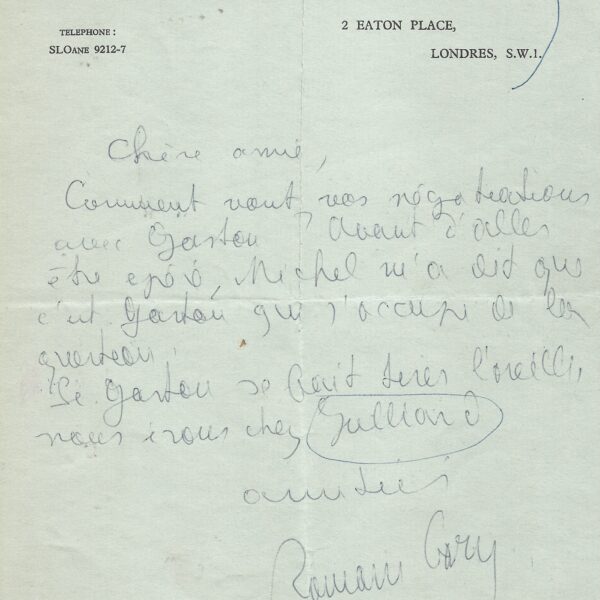 TELEPHONE :
SLOANE 9212-7
2 EATON PLACE,
LONDRES, S.W.1.
Chère amie,
Comment vont vos négotiations
avec Gaston ? Avant d'aller
être opéré, Michel m'a dit que
c'est Gaston qui s'occupe de la
question.
Si Gaston se fait tirer l'oreille,
nous irons chez Julliard
amitiés
Romain Gary